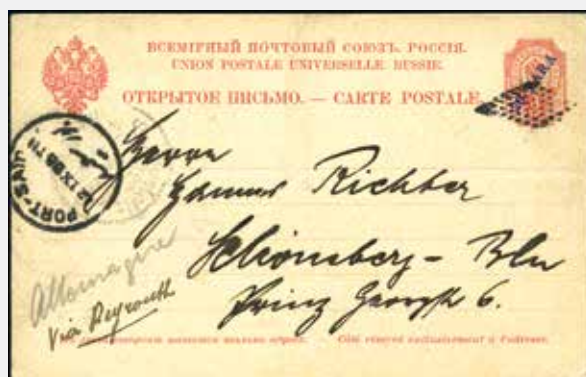 ВСЕМІРНЫЙ ПОЧТОВЫЙ СОЮЗЪ. РОССІЯ.
UNION POSTALE UNIVERSELLE. RUSSIE.
ОТКРЫТОЕ ПИСЬМО. — CARTE POSTALE
PARA
PORT-SAID
Herrn
Richter
Schöneberg - Bln
Prinz Georgstr 6.
Allemagne
Via Beyrouth
Côté réservé exclusivement à l'adresse.